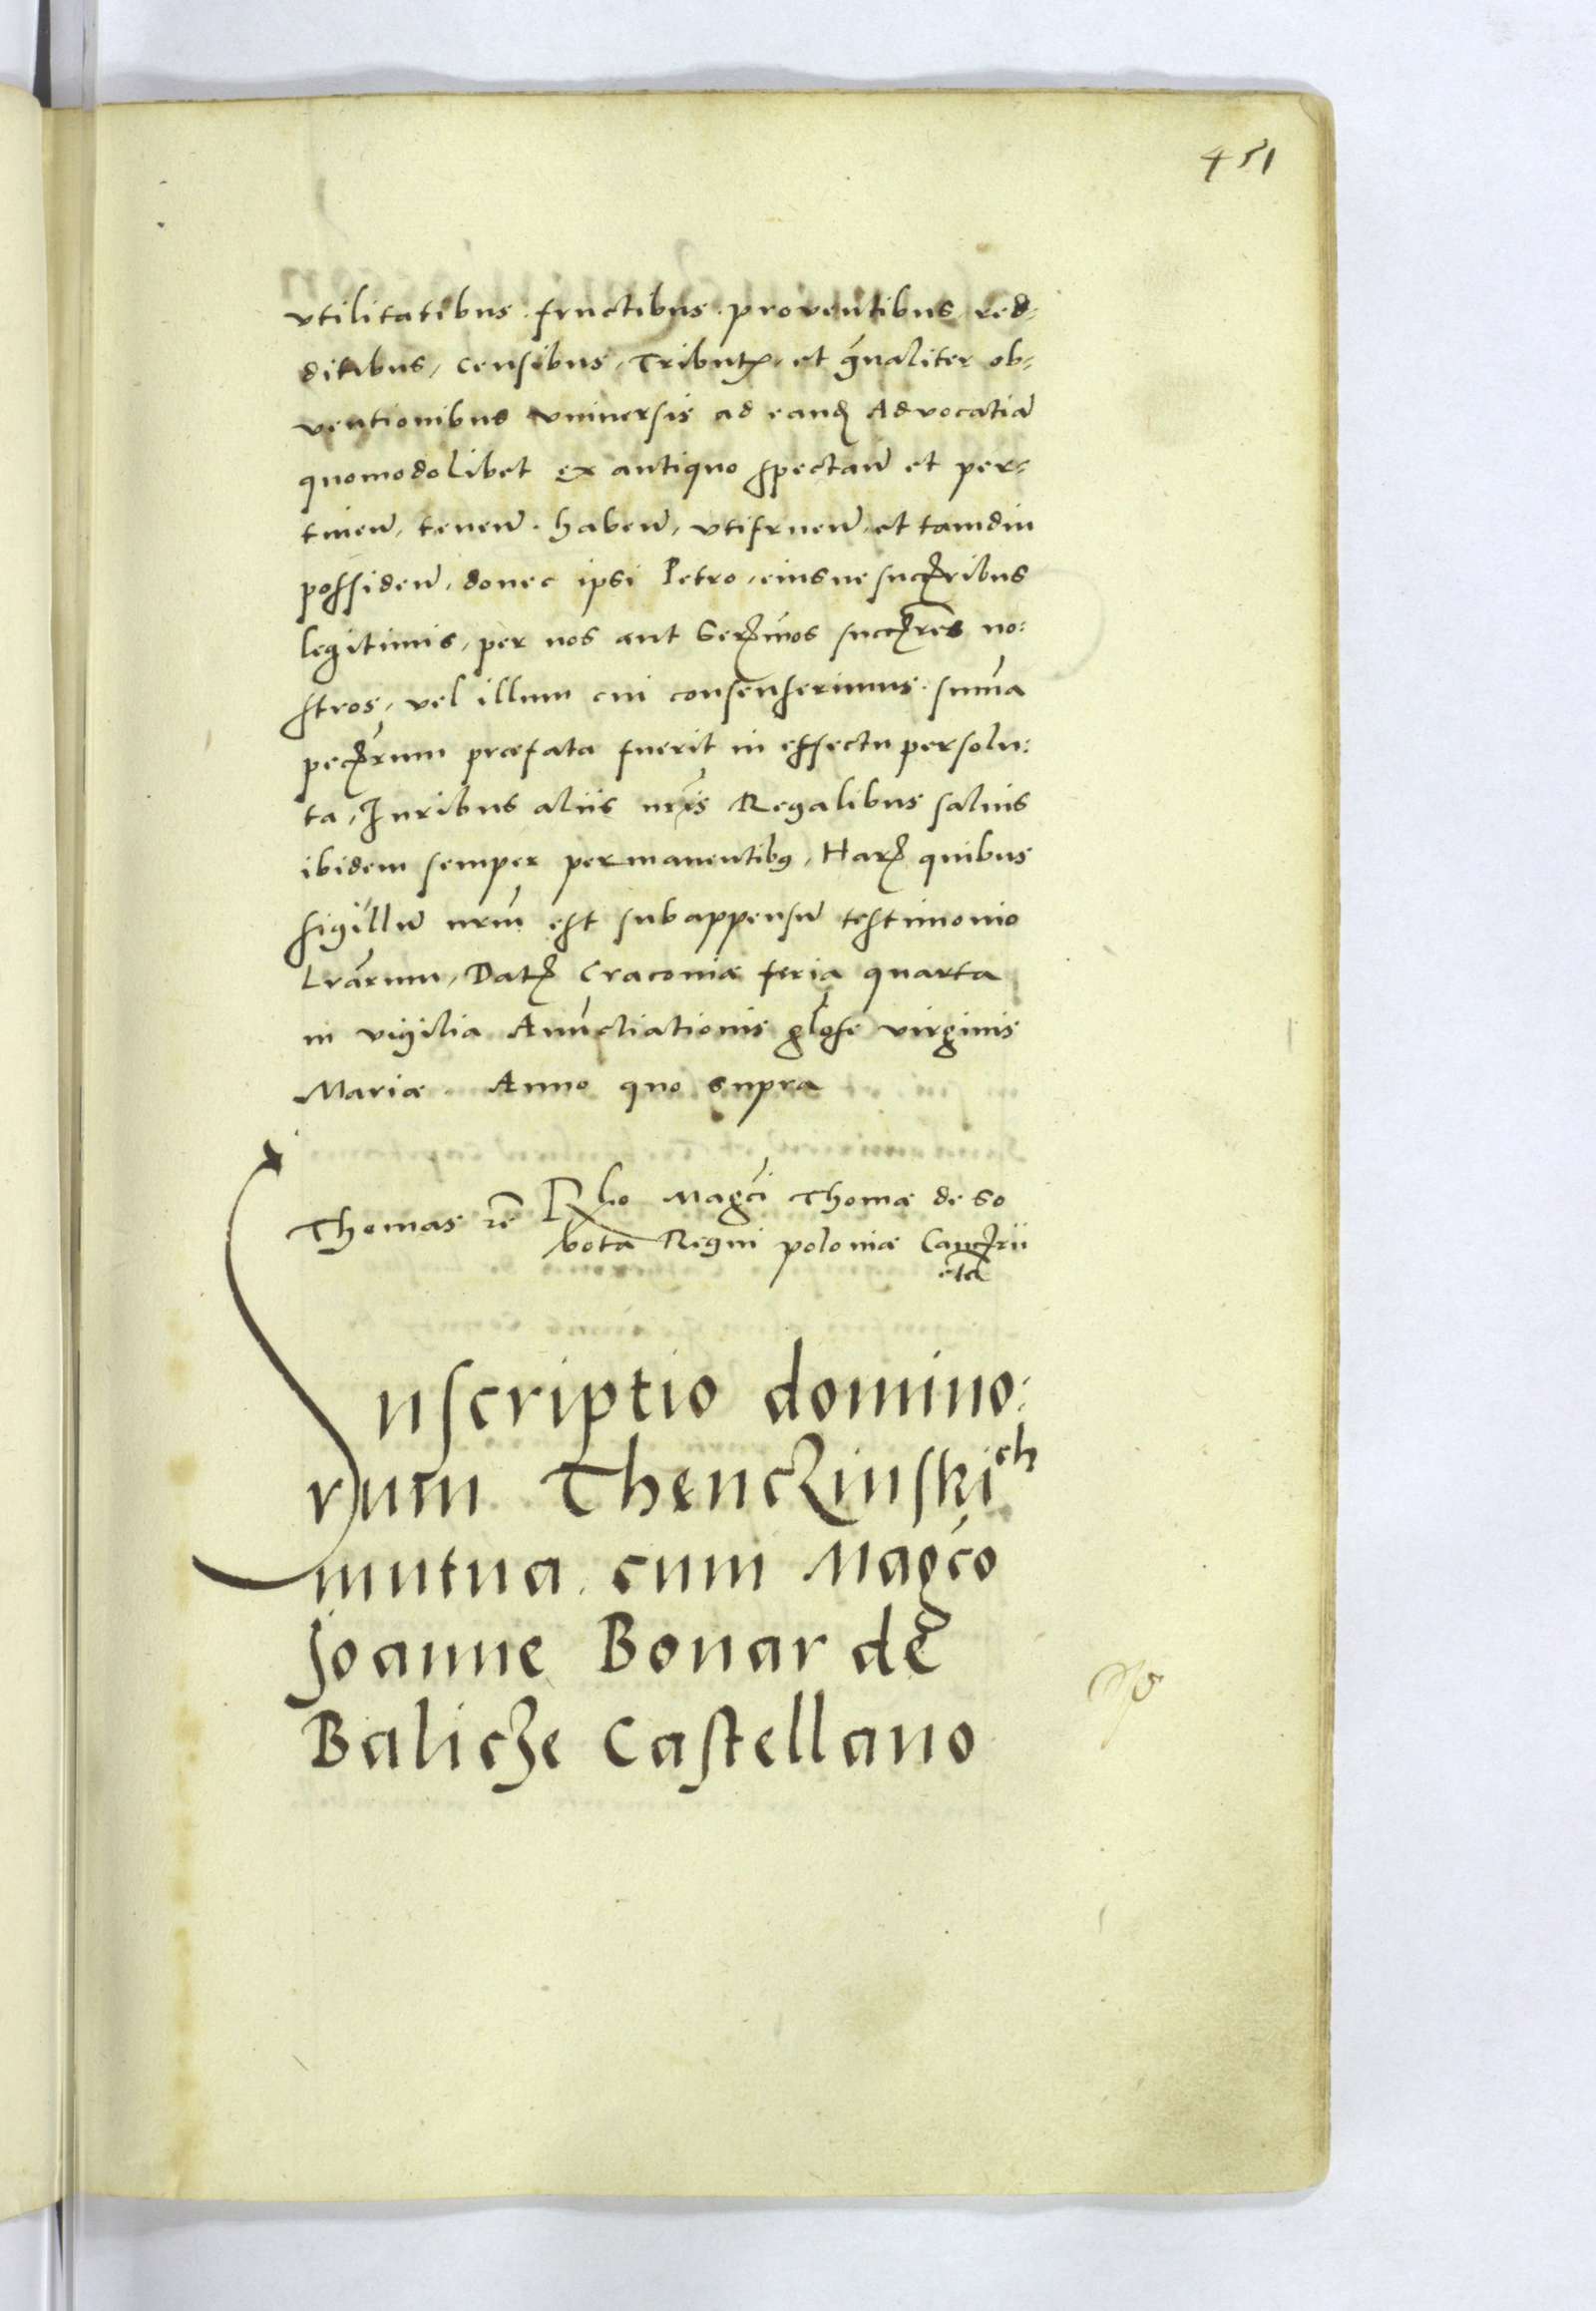 451
vtilitatibus. fructibus. proventibus, red-
ditibus, censibus, Tributꝭ, et gn̄aliter ob-
ventionibus vniuersis ad eandꝭ Advocatiā
quomodolibet ex antiquo spectan̄ et per-
tinen̄, tenen̄. haben̄, vtifruen̄, et tamdiu
possiden̄, donec ipsi Petro, eiusue succꝭribus
legitimis, per nos aut Serꝭmos succꝭres no:
stros, vel illum cui consenserimus. sum̄a
pecꝭrum præfata fuerit in effectu persolu:
ta, Iuribus aliis nrīs Regalibus saluis
ibidem semper permanentibꝰ, Harꝭ quibus
sigillū nrm̄ est subappensū testimonio
Lrārum, Datꝭ Craconiæ feria quarta
in vigilia Anūctiationis glose virginis
Mariæ. Anno quo supra
Thomas rē Rlio Magci Thomæ de So
bota Regni poloniæ Cancꝭrii
etā
nscriptio domino:
rum Thenczinskich
mutua cum Magco
Joanne Bonar de
Balicze Castellano